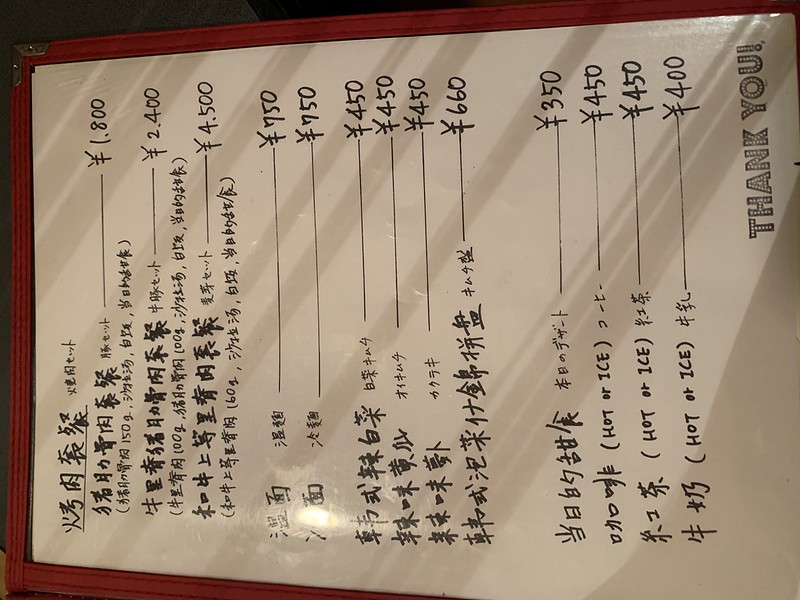 烤肉套餐 焼肉セット
猪肋骨肉套餐 豚セット ¥1.800
(猪肋骨肉150g,沙拉汤,白饭,当日的甜食)
牛里脊猪肋骨肉套餐 牛豚セット ¥2.400
(牛里脊肉100g,猪肋骨肉100g,沙拉汤,白饭,当日的甜食)
和牛上等里脊肉套餐 麦芽セット ¥4.500
(和牛上等里脊肉160g,沙拉汤,白饭,当日的甜食)
温面 温麺 ¥750
冷面 冷麺 ¥750
韩式辣白菜 白菜キムチ ¥450
辣味黄瓜 オイキムチ ¥450
辣味萝卜 カクテキ ¥450
韩式泡菜什錦拼盘 キムチ盛 ¥660
当日的甜食 本日のデザート ¥350
咖啡 (HOT or ICE) コーヒー ¥450
红茶 (HOT or ICE) 紅茶 ¥450
牛奶 (HOT or ICE) 牛乳 ¥400
THANK YOU!